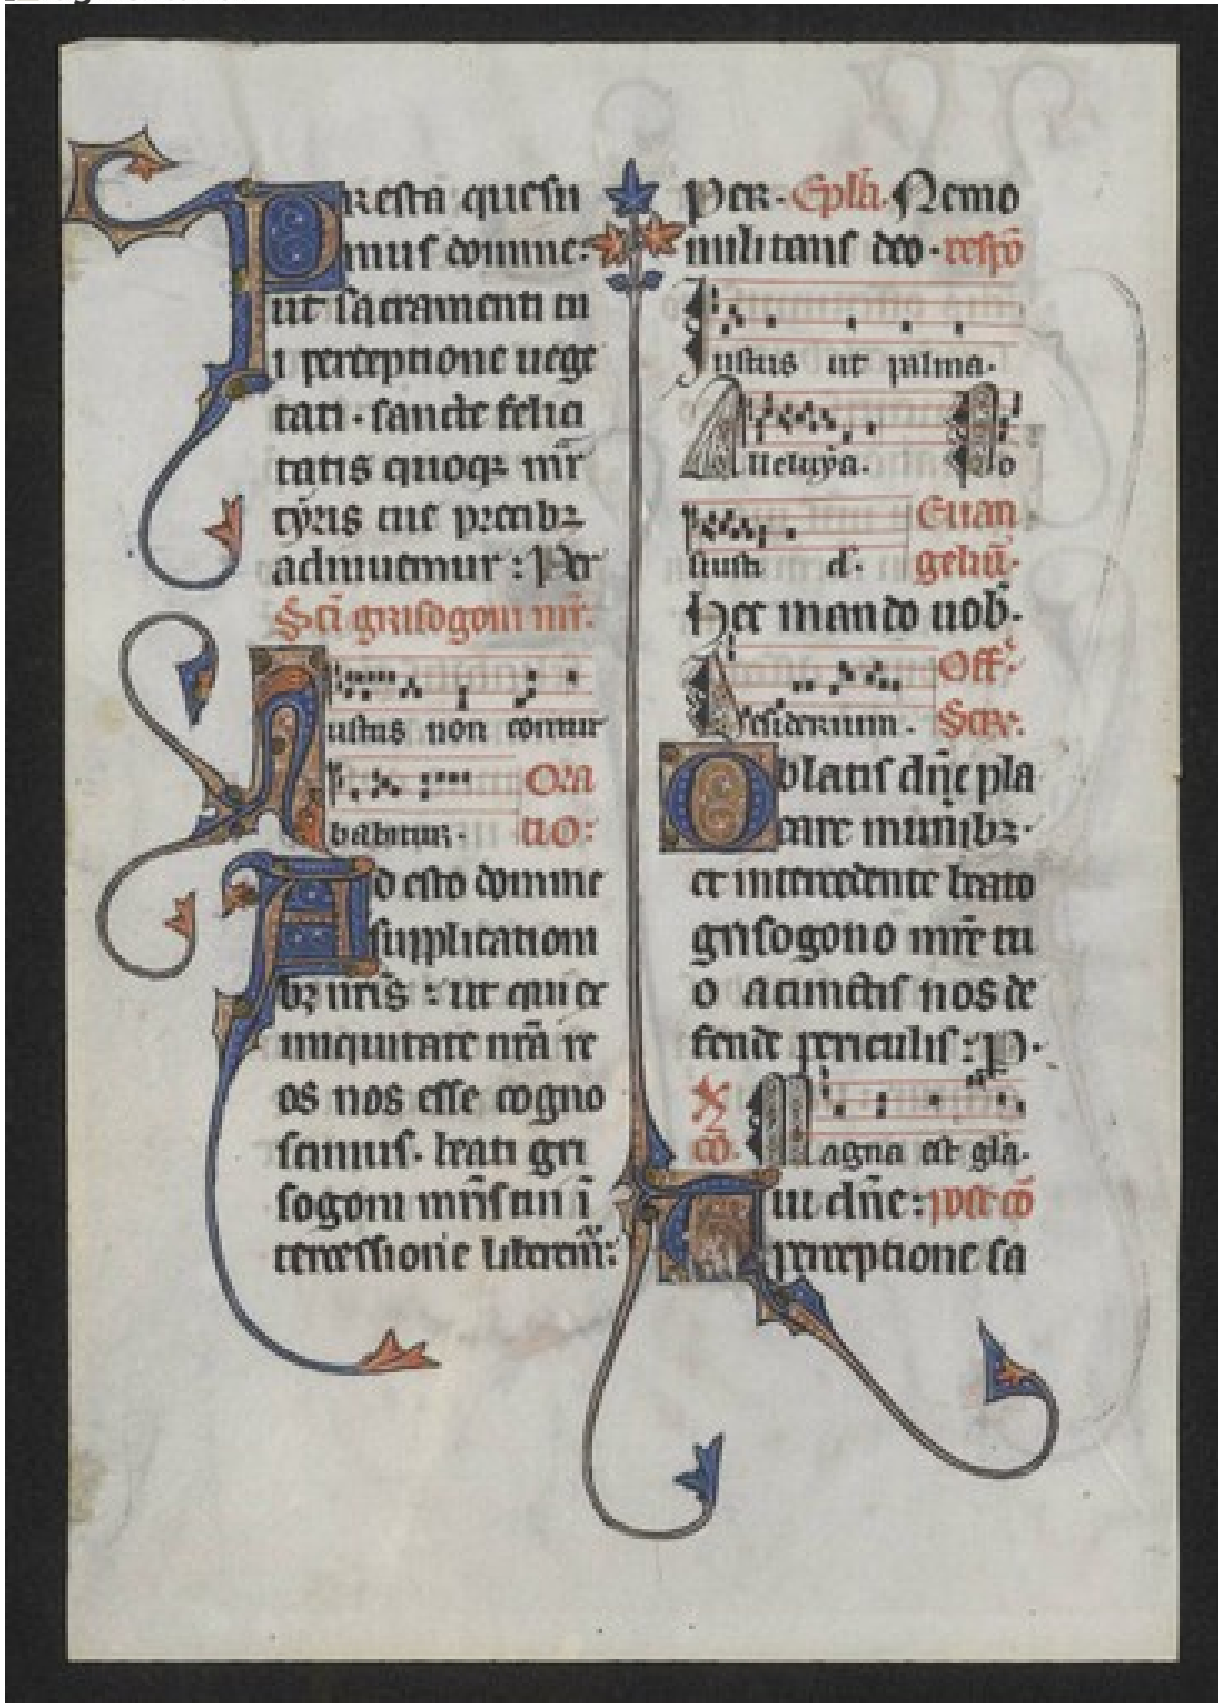 Presta quesu
mus domine:
ut sacramenti tu
i perceptione uege
tati. sancte felici
tatis quoqꝫ mr̄
tyris tue precibꝫ
adiuuemur: Per
Sc̄i grisogoni mr̄.
Iustus non contur
babitur. Ora
tio:
Adesto domine
supplicationi
bꝫ nr̄is: ut qui ex
iniquitate nr̄a re
os nos esse cogno
scimus. beati gri
sogoni mr̄is tui ī
tercessione liberem̄:
Per. Ep̄la. Nemo
militans deo. respō
Iustus ut palma.
Alleluya.
iusti d. Euan
geliū.
Hec mando uob.
Off
Desiderium. Secr.
Oblatis dn̄e pla
care munibꝫ.
et intercedente beato
grisogono mr̄e tu
o a cunctis nos de
fende periculis: P.
cō. Magna est gl̄a.
Tui dn̄e: post cō
perceptione sa